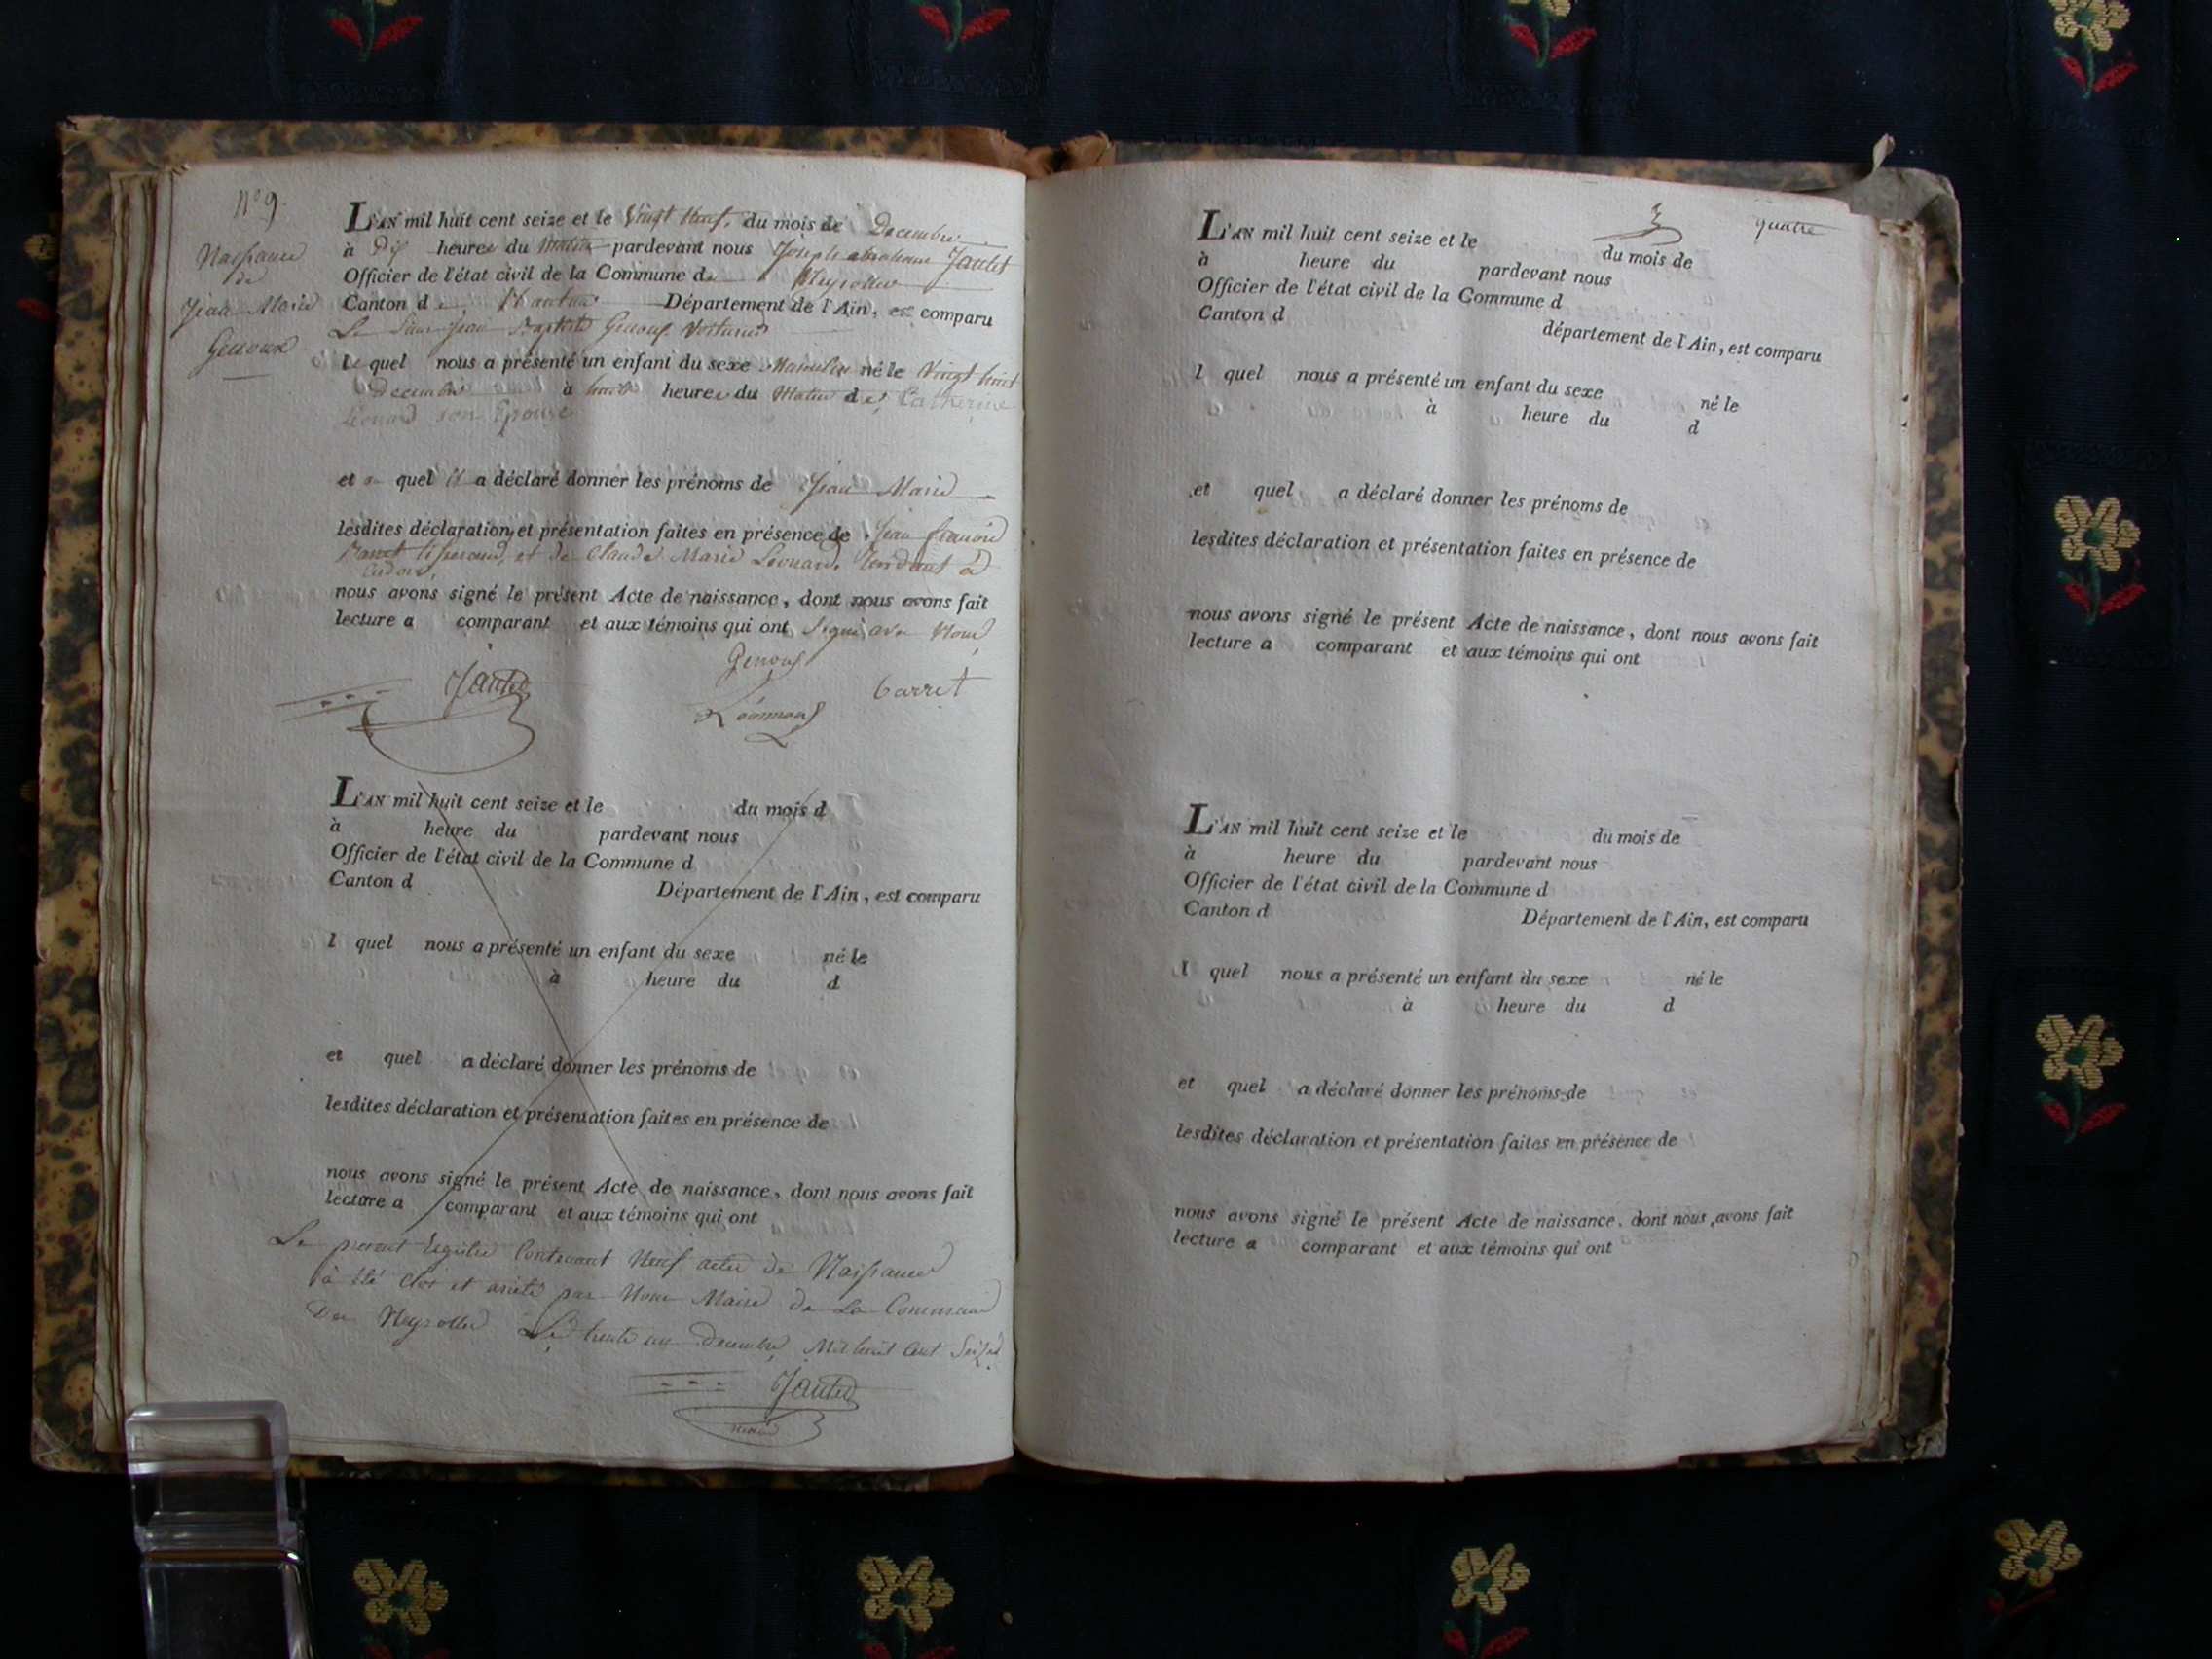 N° 9.
Naissance
de
Jean Marie
Genoux
L'AN mil huit cent seize et le Vingt Neuf, du mois de Decembre
à Dix heures du Matin pardevant nous Joseph Jantet
Officier de l'état civil de la Commune de Neyrolles
Canton de Nantua Département de l'Ain, est comparu
Le Sieur Jean Baptiste Genoux Voiturier
le quel nous a présenté un enfant du sexe Masculin né le Vingt huit
Decembre à heures du Matin de Catherine
Léonard son Epouse
et au quel il a déclaré donner les prénoms de Jean Marie
lesdites déclaration et présentation faites en présence de Jean François
Barret tisserand, et de Claude Marie Léonard,
nous avons signé le présent Acte de naissance, dont nous avons fait
lecture a comparant et aux témoins qui ont signé avec Nous
Genoux
Jantet
barret
Léonnard
L'AN mil huit cent seize et le du mois d
à heure du pardevant nous
Officier de l'état civil de la Commune d
Canton d Département de l'Ain, est comparu
l quel nous a présenté un enfant du sexe né le
à heure du d
et quel a déclaré donner les prénoms de
lesdites déclaration et présentation faites en présence de
nous avons signé le présent Acte de naissance, dont nous avons fait
lecture a comparant et aux témoins qui ont
Le present Registre Contenant Neuf actes de Naissance
à été Clos et arrêté par Nous Maire de La Commune
Des Neyrolles Le trente un decembre Mil huit Cent Seize.
Jantet
quatre
L'AN mil huit cent seize et le du mois de
à heure du pardevant nous
Officier de l'état civil de la Commune d
Canton d département de l'Ain, est comparu
l quel nous a présenté un enfant du sexe né le
à heure du d
et quel a déclaré donner les prénoms de
lesdites déclaration et présentation faites en présence de
nous avons signé le présent Acte de naissance, dont nous avons fait
lecture a comparant et aux témoins qui ont
L'AN mil huit cent seize et le du mois de
à heure du pardevant nous
Officier de l'état civil de la Commune d
Canton d Département de l'Ain, est comparu
l quel nous a présenté un enfant du sexe né le
à heure du d
et quel a déclaré donner les prénoms de
lesdites déclaration et présentation faites en présence de
nous avons signé le présent Acte de naissance, dont nous avons fait
lecture a comparant et aux témoins qui ont